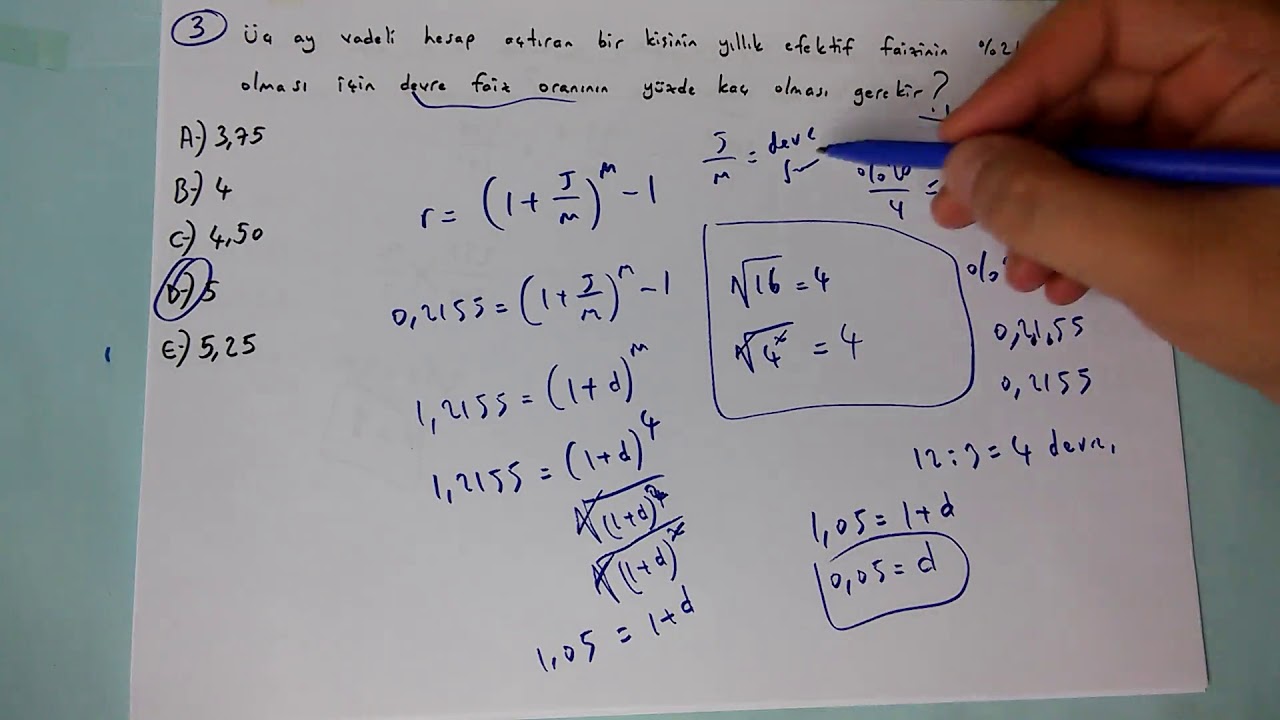 3 Üç ay vadeli hesap açtıran bir kişinin yıllık efektif faizinin %21
olması için devre faiz oranının yüzde kaç olması gerekir?
A-) 3,75
B-) 4
C-) 4,50
D-) 5
E-) 5,25
r = (1 + J/m)^m - 1
0,2155 = (1 + J/m)^m - 1
1,2155 = (1 + d)^m
1,2155 = (1+d)^4
√(1+d)^4
√(1+d)^x
1,05 = 1+d
J/m = devre
√16 = 4
√4^x = 4
/4 =
0,21,55
0,2155
12 : 3 = 4 devre,
1,05 = 1+d
0,05 = d